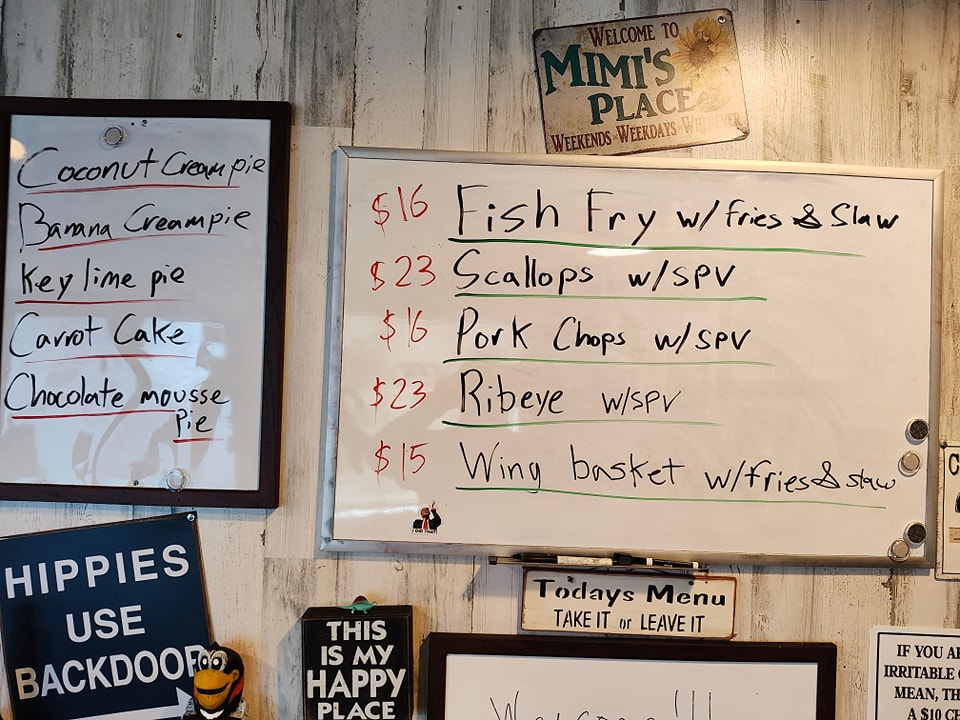 WELCOME TO
MIMI'S
PLACE
WEEKENDS · WEEKDAYS ·
Coconut Cream pie
Banana Cream pie
Key lime pie
Carrot Cake
Chocolate mousse
Pie
$16 Fish Fry w/ fries & Slaw
$23 Scallops w/ SPV
$16 Pork Chops w/ SPV
$23 Ribeye w/SPV
$15 Wing basket w/fries & slaw
I DID THAT!
Todays Menu
TAKE IT or LEAVE IT
HIPPIES
USE
BACKDOOR
THIS
IS MY
HAPPY
PLACE
IF YOU
IRRITABLE
MEAN,
A $10